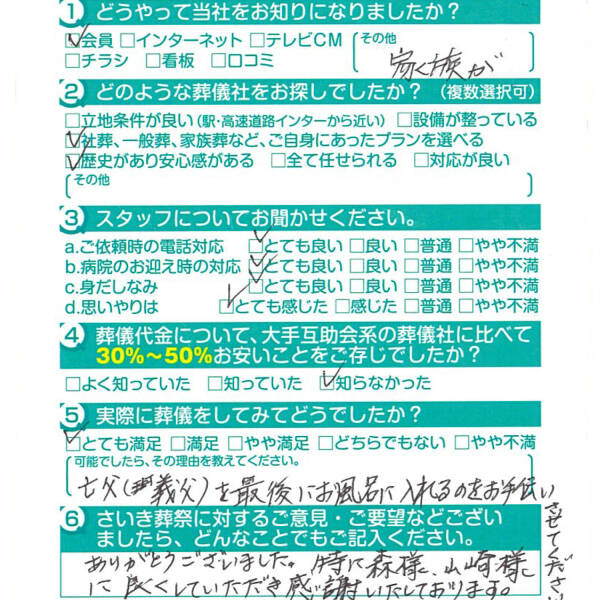 1 どうやって当社をお知りになりましたか?
☑会員 □インターネット □テレビCM
□チラシ □看板 □口コミ
その他
家族が
2 どのような葬儀社をお探しでしたか?(複数選択可)
□立地条件が良い(駅・高速道路インターから近い) □設備が整っている
☑社葬、一般葬、家族葬など、ご自身にあったプランを選べる
☑歴史があり安心感がある □全て任せられる □対応が良い
その他
3 スタッフについてお聞かせください。
a.ご依頼時の電話対応 ☑とても良い □良い □普通 □やや不満
b.病院のお迎え時の対応 ☑とても良い □良い □普通 □やや不満
c.身だしなみ ☑とても良い □良い □普通 □やや不満
d.思いやりは ☑とても感じた □感じた □普通 □やや不満
4 葬儀代金について、大手互助会系の葬儀社に比べて
30%~50%お安いことをご存じでしたか?
□よく知っていた □知っていた ☑知らなかった
5 実際に葬儀をしてみてどうでしたか?
☑とても満足 □満足 □やや満足 □どちらでもない □やや不満
可能でしたら、その理由を教えてください。
亡父(義父)を最後にお風呂に入れるのをお手伝い
させてくださり
6 さいき葬祭に対するご意見・ご要望などござい
ましたら、どんなことでもご記入ください。
ありがとうございました。特に森様、山崎様に
に良くしていただき感謝いたしております。